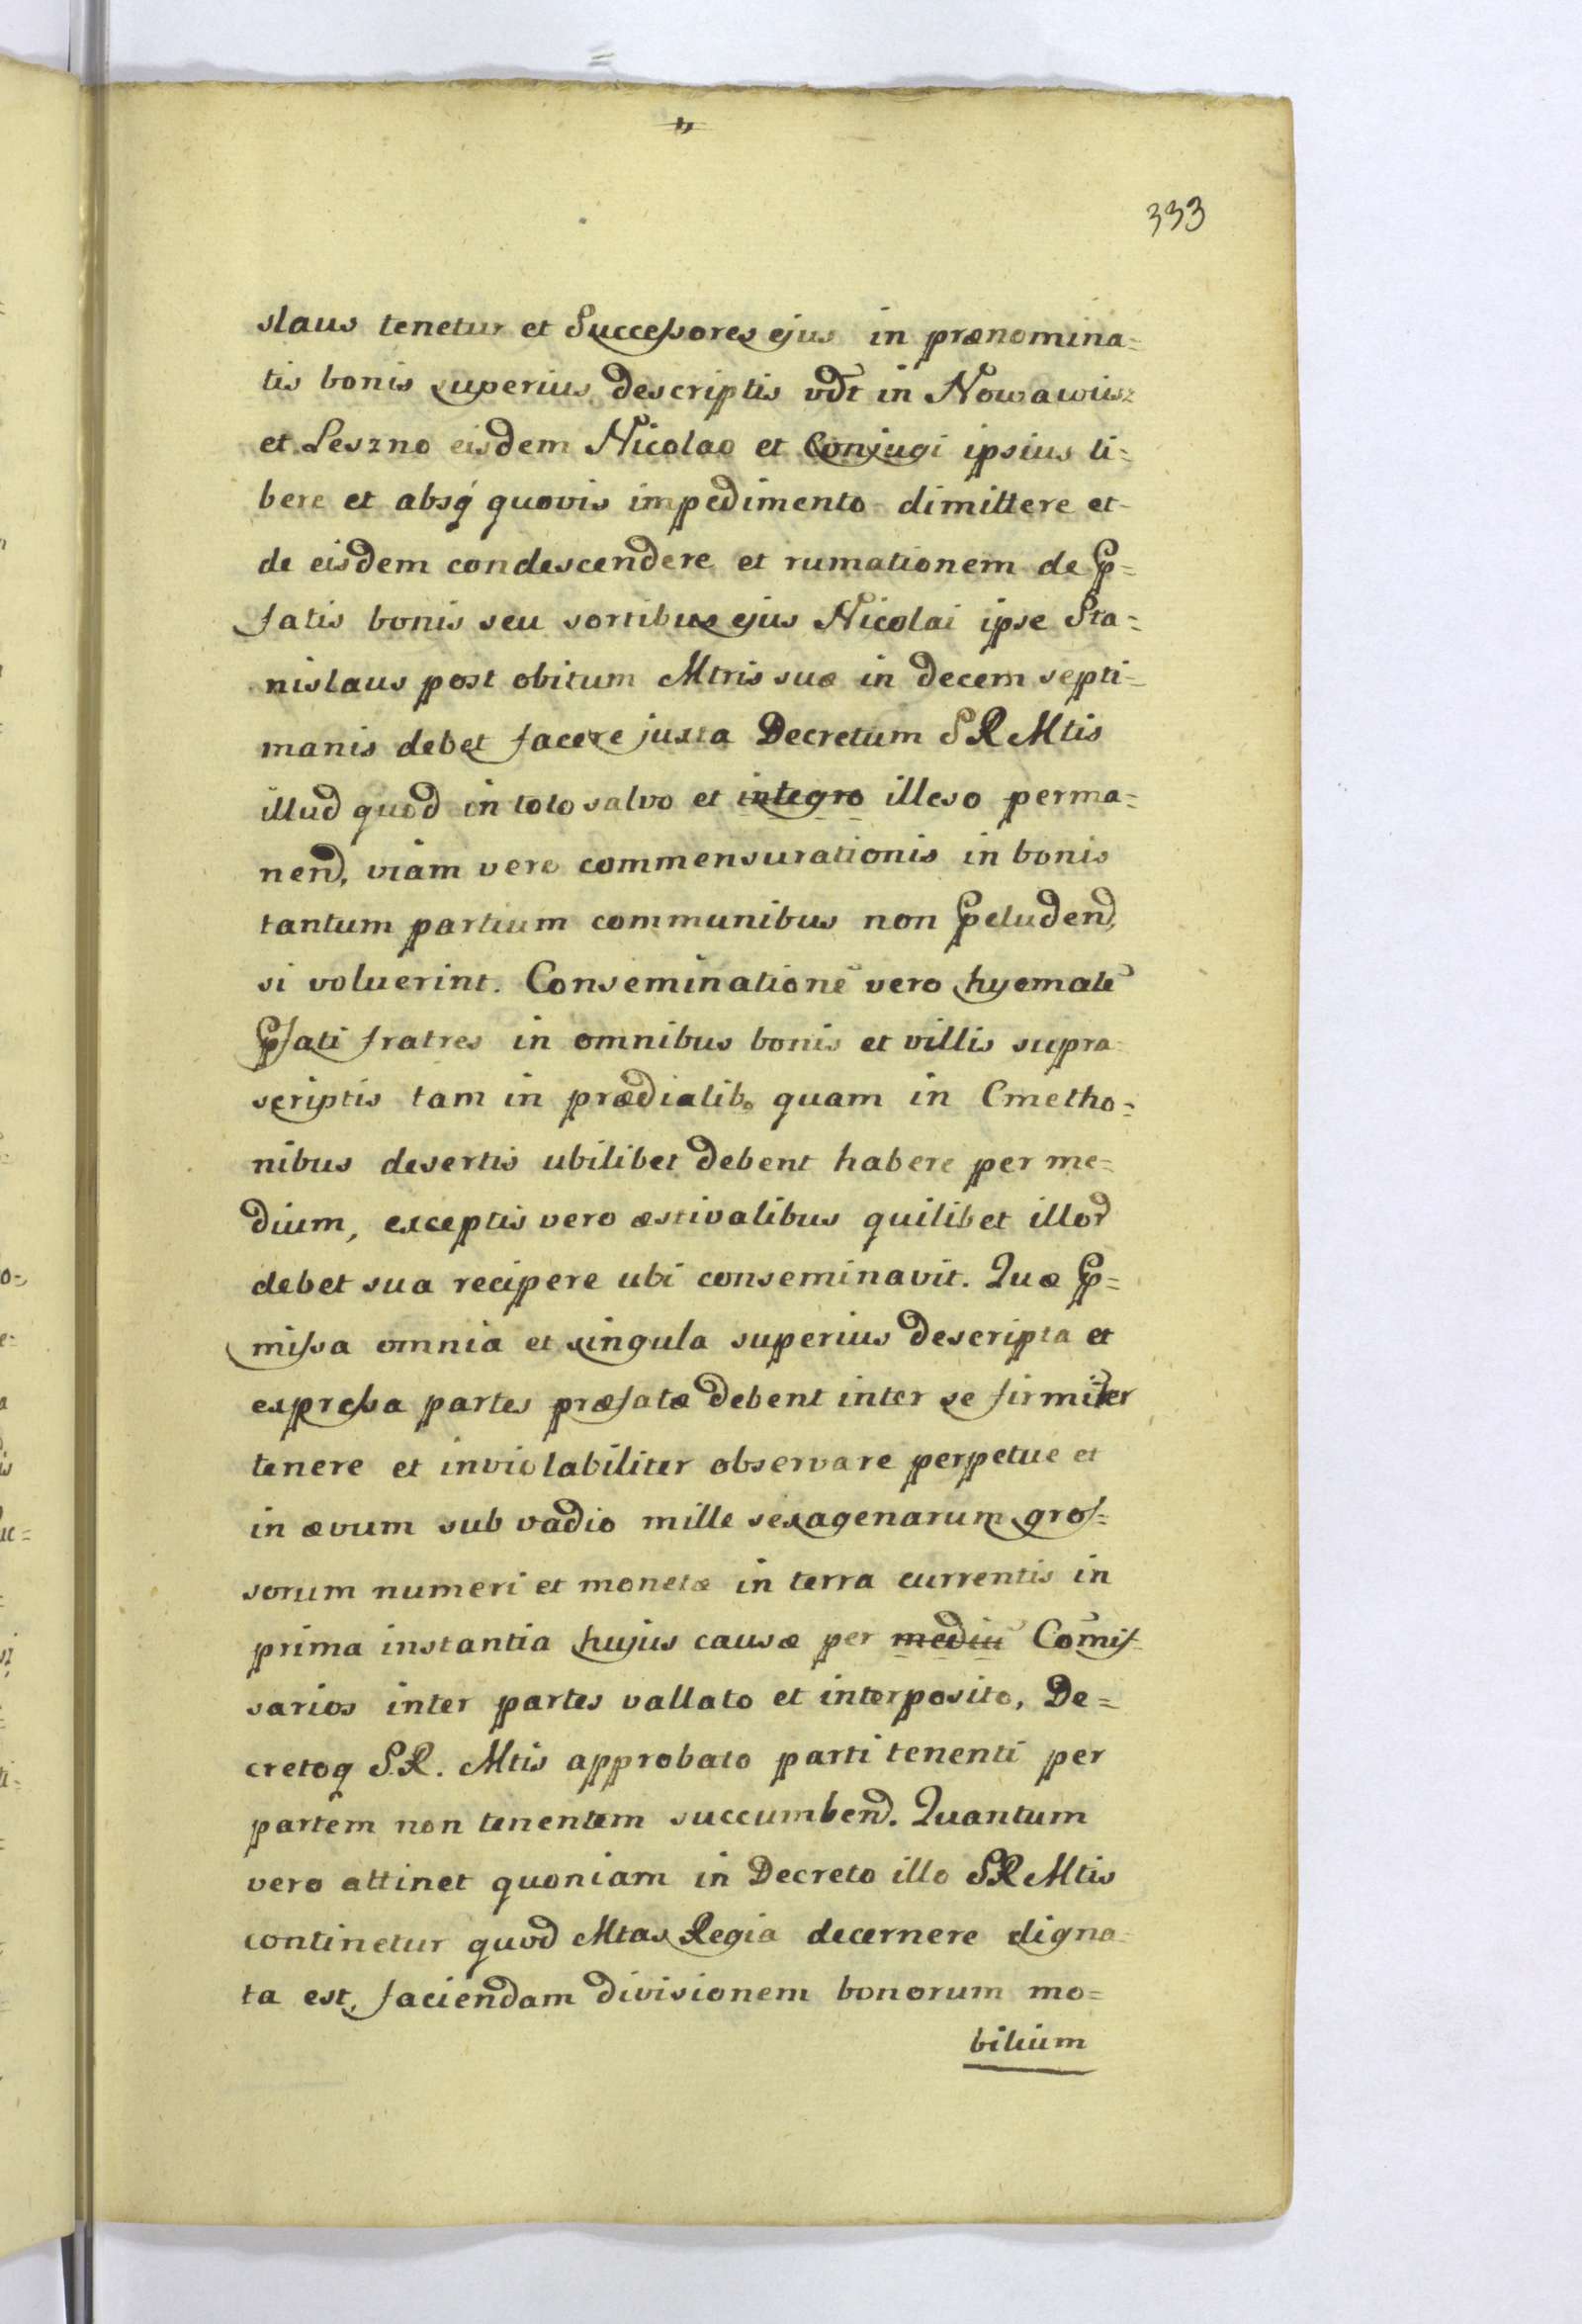 333
slaus tenetur et Successores ejus in prænomina=
tis bonis superius descriptis vdt in Nowawiisz
et Leszno eisdem Nicolao et Conjugi ipsius li=
bere et absq́ quovis impedimento dimittere et
de eisdem condescendere et rumationem de p=
fatis bonis seu sortibus ejus Nicolai ipse Sta=
nislaus post obitum Mtris suæ in decem septi=
manis debet facere juxta Decretum S R Mtis
illud quod in toto salvo et integro illeso perma=
nend, viam vero commensurationis in bonis
tantum partium communibus non peludend,
si voluerint. Conseminationē vero hyemalē
pfati fratres in omnibus bonis et villis supra
scriptis tam in prædialib, quam in Cmetho=
nibus desertis ubilibet debent habere per me=
dium, exceptis vero æstivalibus quilibet illor
debet sua recipere ubi conseminavit. Quæ p=
missa omnia et singula superius descripta et
expressa partes præfatæ debent inter se firmiter
tenere et inviolabiliter observare perpetue et
in ævum sub vadio mille sexagenarum gros=
sorum numeri et monetæ in terra currentis in
prima instantia hujus causæ per mediū Comis
sarios inter partes vallato et interposito, De=
cretoq S.R. Mtis approbato parti tenenti per
partem non tenentem succumbend. Quantum
vero attinet quoniam in Decreto illo SR Mtis
continetur quod Mtas Regia decernere digna
ta est, faciendam divisionem bonorum mo=
bilium